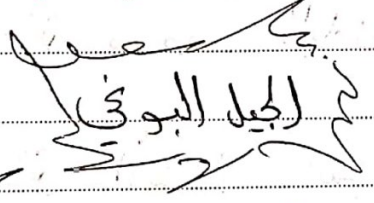 الجيل البوني